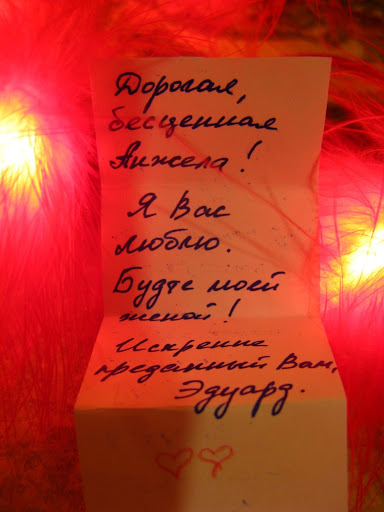 Дорогая,
бесценная
Анжела!
Я Вас
люблю.
Будте моей
женой!
Искренне
преданный Вам,
Эдуард.